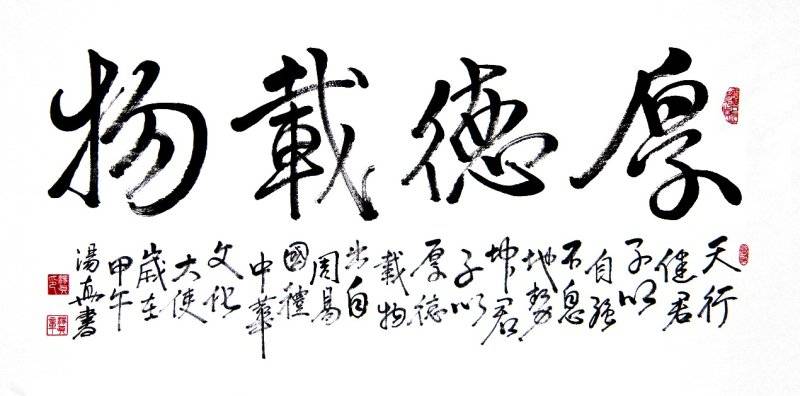 厚德載物
天行
健君
子以
自强
不息
地勢
坤君
子以
厚德
載物
出自
周易
國禮
中華
文化
大使
歲在
甲午
湯書